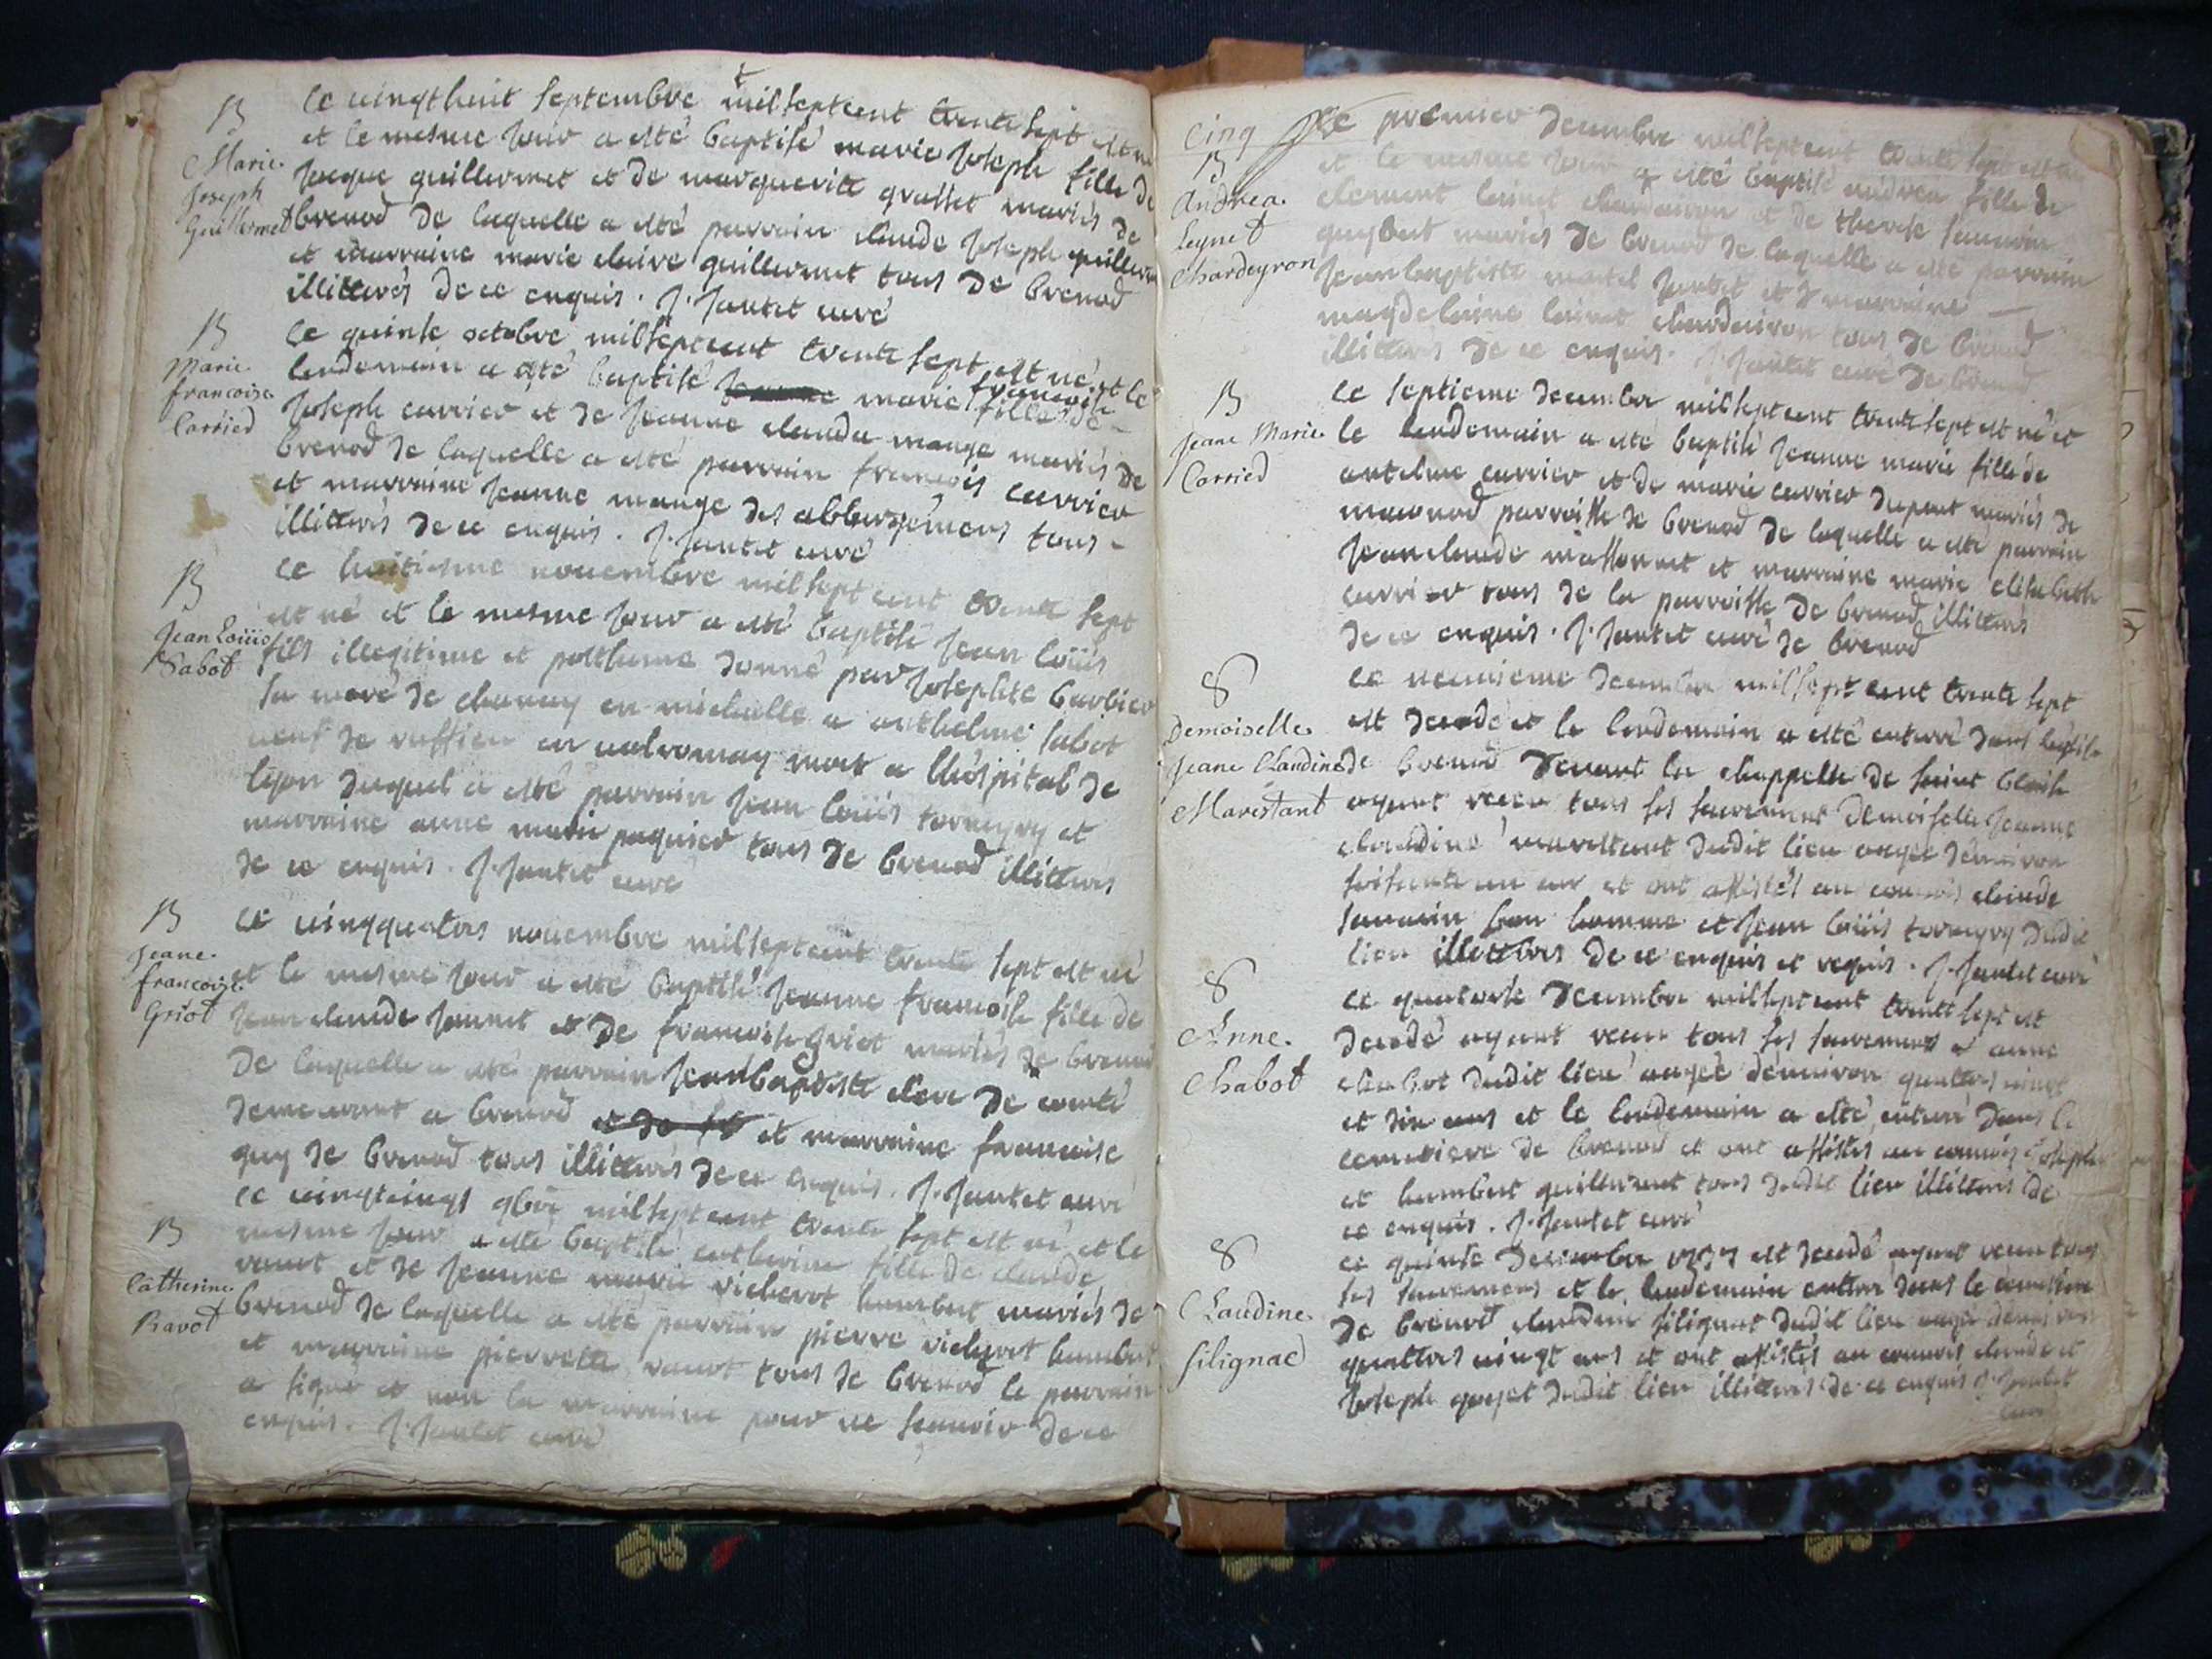 B
Marie
Joseph
Guillermet
Le vingthuit septembre milseptcent trente sept est né
et le mesme jour a esté baptisé marie joseph fille de
jacque guillermet et de marguerite grasset mariés de
brenod de laquelle a esté parrain claude joseph guillerm
et marraine marie claire guillermet tous de brenod
illitterés de ce enquis. J. Jantet curé
B
Marie
francoise
Carried
Le quinse octobre milseptcent trente sept est né et le
lendemain a esté baptisé marie francoise fille de
joseph carrier et de jeanne clauda mange mariés de
brenod de laquelle a esté parrain francois carrier
et marraine jeanne mange des abbergemens tous
illitterés de ce enquis. J. Jantet curé
B
Jean Loüis
Sabot
Le huitiesme nouembre milsept cent trente sept
est né et le mesme jour a esté baptisé jean loüis
fils illegitime et posthume donné par josephte barbier
sa mere de chanay en michaille a anthelme sabot
veuf de ruffieu en valromay mort a l'hospital de
lyon duquel a esté parrain jean loüis tornyry et
marraine anne marie paquier tous de brenod illitterés
de ce enquis. J. Jantet curé
B
Jeane
francoise
Griot
Le vingquatres nouembre milseptcent trente sept est né
et le mesme jour a esté baptisé jeanne francoise fille de
jean claude jannet et de francoise griot mariés de brenod
de laquelle a esté parrain jean baptiste clerc de comté
demeurant a brenod et de et marraine francoise
guy de brenod tous illitterés de ce enquis. J. Jantet curé
B
Catherine
Ravot
Le vingtcinqs 9bre milseptcent trente sept est né et le
mesme jour a esté baptisé catherine fille de claude
ravot et de jeanne marie richerot humbert mariés de
brenod de laquelle a esté parrain pierre richerot humbert
et marraine pierrette ravot tous de brenod le parrain
a signé et non la marraine pour ne scauoir de ce
enquis. J. Jantet curé
cinq
B
Andrea
Leynet
Chardeyron
Le premier decembre milseptcent trente sept est né
et le mesme jour a esté baptisé andrea fille de
clement lainet chardairon et de therese sauarin
guybert mariés de brenod de laquelle a esté parrain
jean baptiste martel jantet et marraine
magdelaine lainet chardairon tous de brenod
illitterés de ce enquis. J. Jantet curé de brenod
B
Jeane Marie
Carried
Le septieme decembre milseptcent trente sept est né et
le lendemain a esté baptisé jeanne marie fille de
antelme carrier et de marie carrier dupont mariés de
macunod parroisse de brenod de laquelle a esté parrain
jean claude massonnet et marraine marie elisabeth
carrier tous de la parroisse de brenod illitterés
de ce enquis. J. Jantet curé de brenod
S
Demoiselle
Jeane Claudine
Marestant
Le neuuieme decembre milsept cent trente sept
est decedé et le lendemain a esté enterré dans l'eglise
de brenod devant la chappelle de saint blaise
ayant receu tous ses sacremens demoiselle jeanne
claudine marestant dudit lieu aagée denuiron
soisante un an et ont assistés au conuois claude
sauarin bon homme et jean loüis tornyry dudit
lieu illitterés de ce enquis et requis. J. Jantet curé
S
Anne
Chabot
Le quatorse decembre milseptcent trente sept est
decedé ayant receu tous ses sacremens anne
chabot dudit lieu aagée denuiron quatres vingt
et six ans et le lendemain a esté enterré dans le
cemetiere de brenod et ont assistés au conuois joseph
et humbert guillermet tous dudit lieu illitterés de
ce enquis. J. Jantet curé
S
Claudine
Silignac
Le quinse desembre 1737 est decedé ayant receu tous
ses sacremens et le lendemain enterré dans le cemetiere
de brenod claudine silignat dudit lieu aagée denuiron
quattres vingt ans et ont assistés au conuois claude et
joseph goyet dudit lieu illitterés de ce enquis J. Jantet
curé